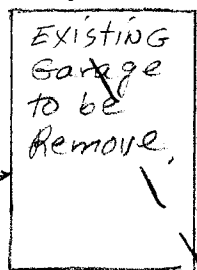 EXistiNG
Garage
to be
Remove.